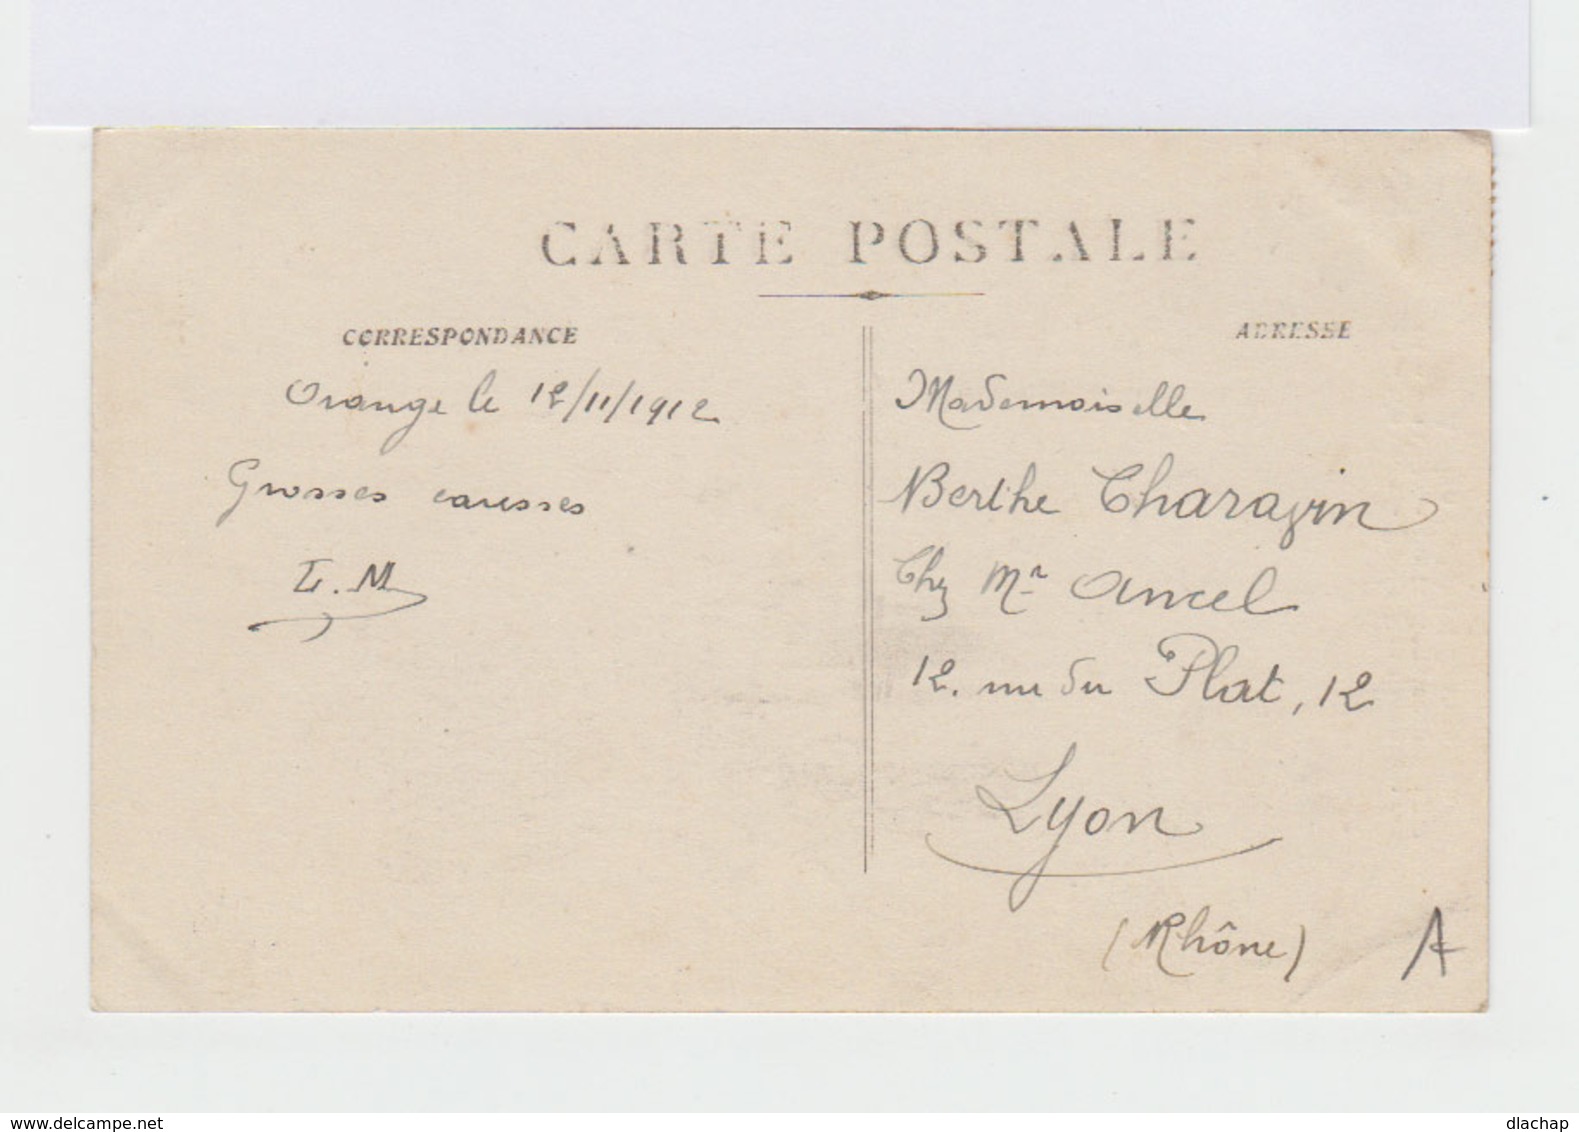 CARTE POSTALE
CORRESPONDANCE
Orange le 12/11/1912
Grosses caresses
L.M
ADRESSE
Mademoiselle
Berthe Charavin
Chez Mr Ancel
12. rue du Plat, 12
Lyon
(Rhône)
A
www.delcampe.net
dlachap